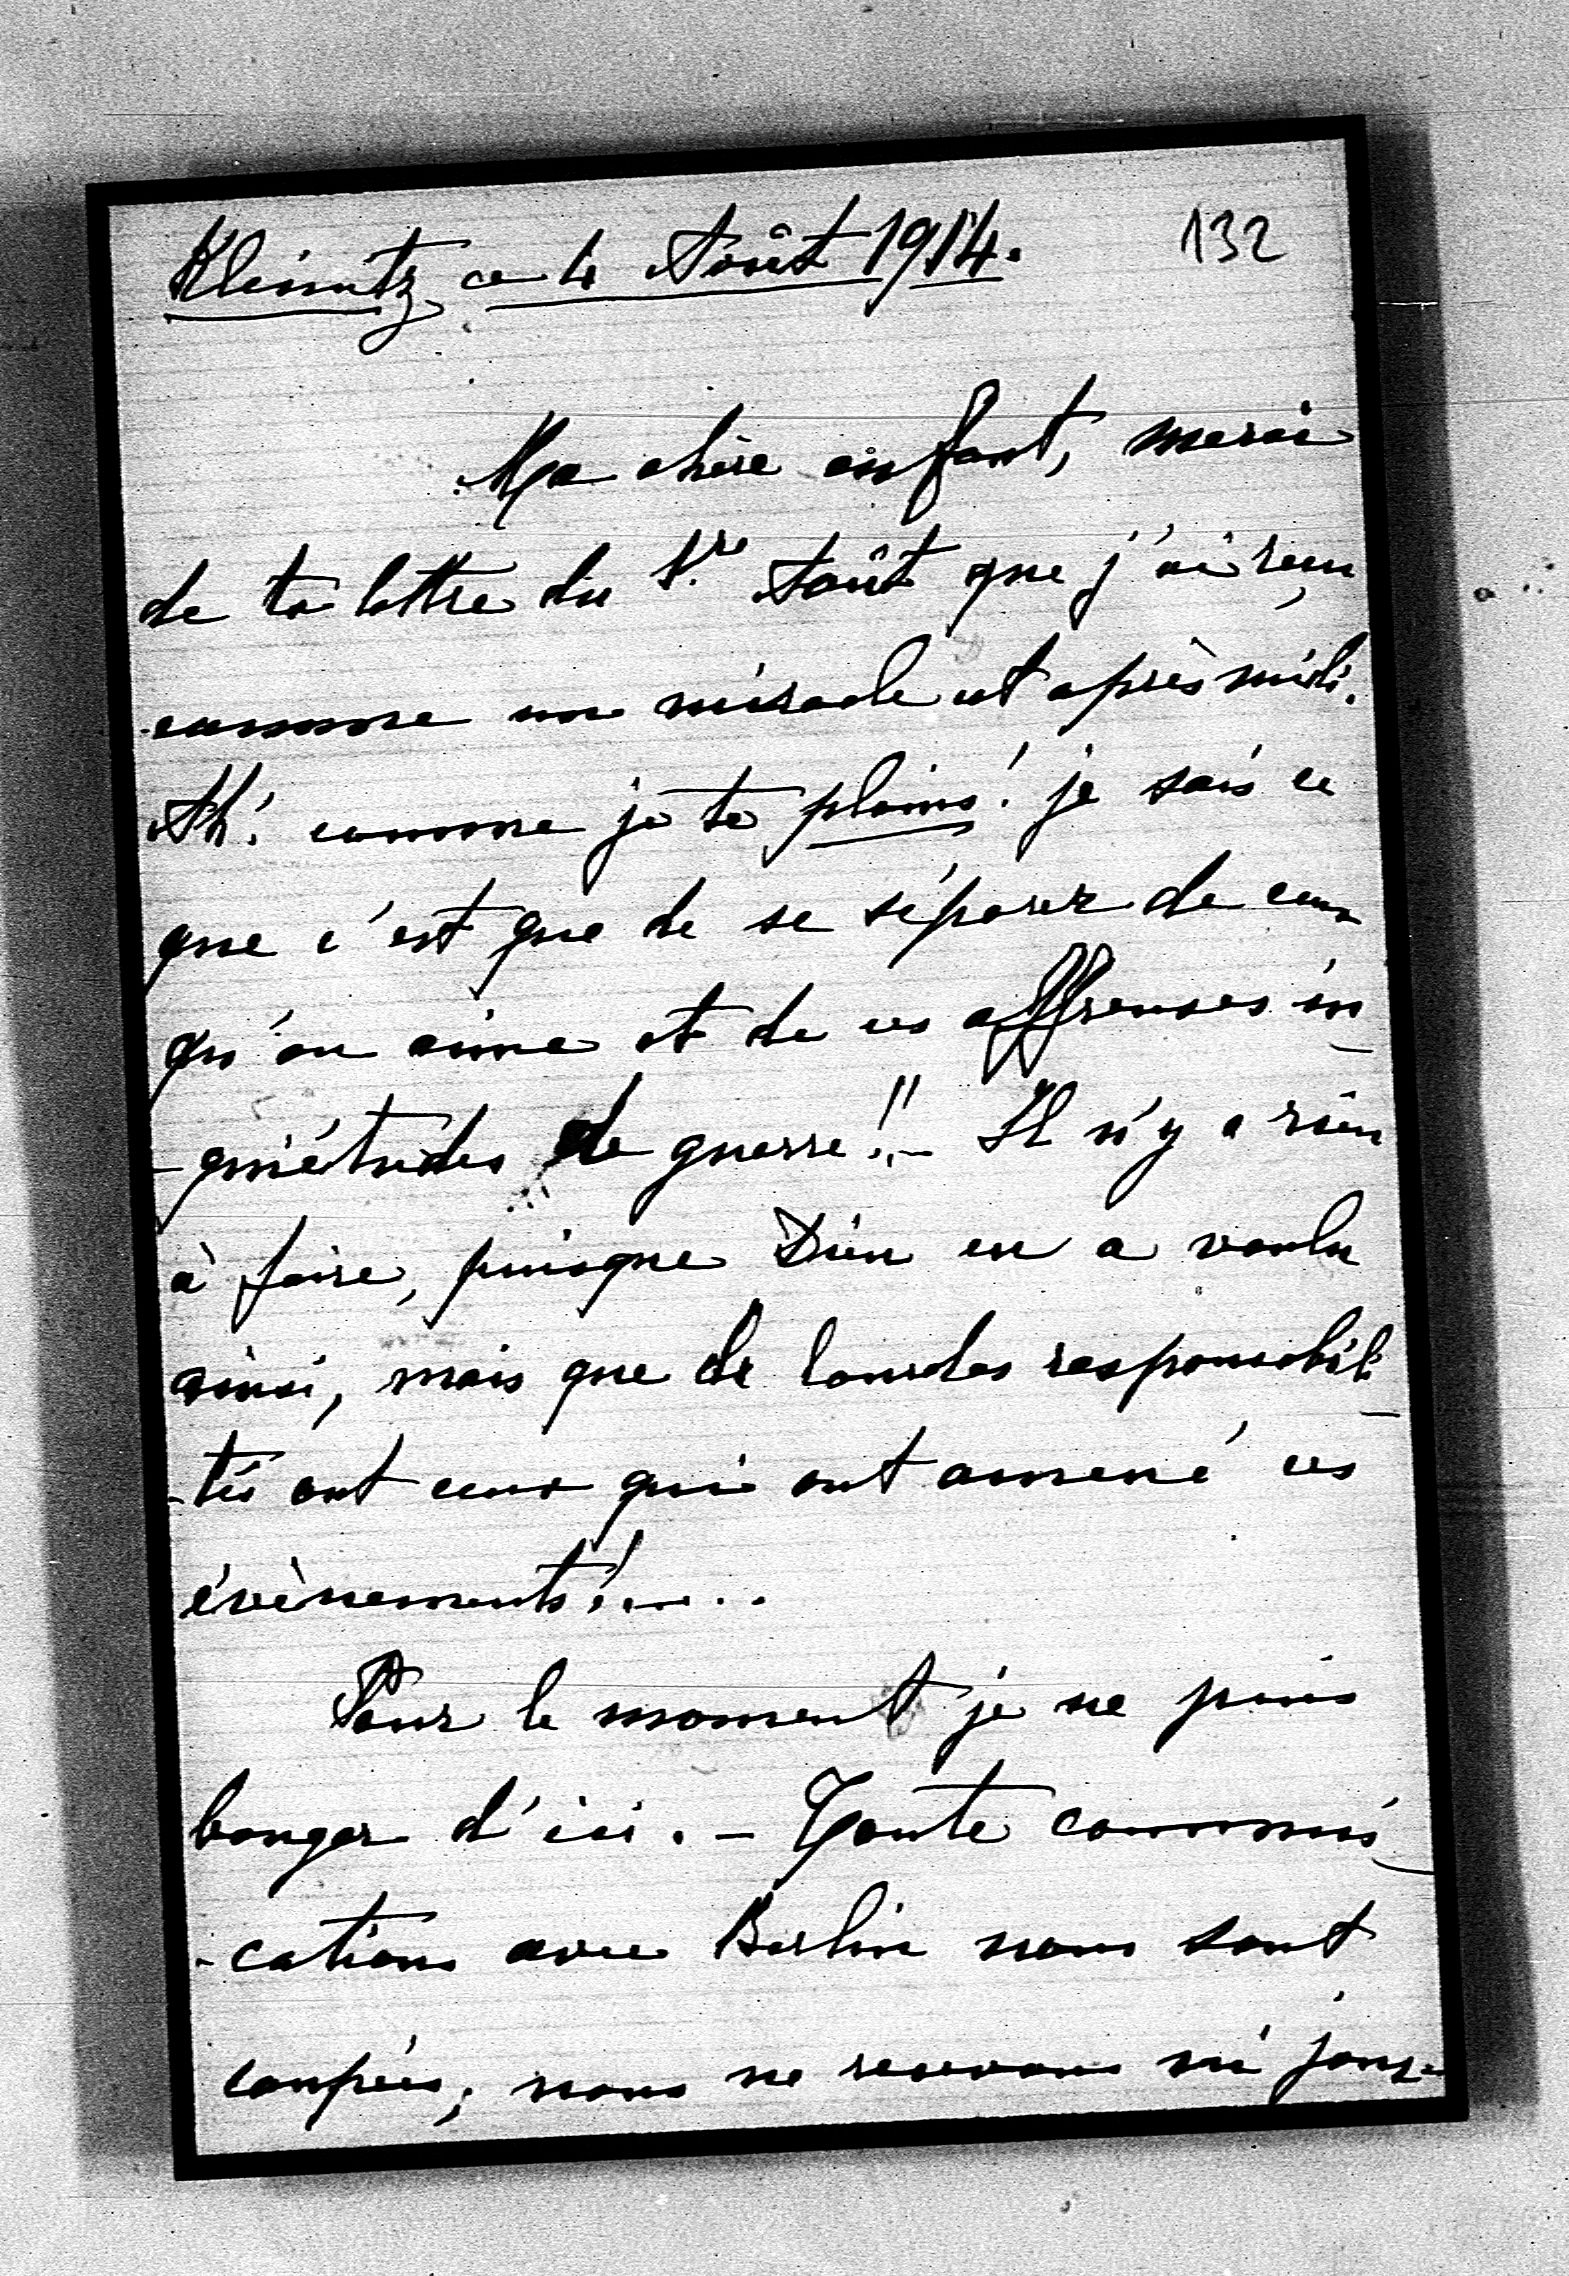 Kleinitz ce 4 Août 1914. 132
Ma chère enfant, merci
de ta lettre du 1.re Août que j'ai reçu
comme un miracle cet après midi.
Ah! comme je te plains! je sais ce
que c'est que de se séparer de ceux
qu'on aime et de ces affreuses in-
-quiétudes de guerre!! – Il n'y a rien
à faire, puisque Dieu en a voulu
ainsi, mais que de lourdes responsabili-
-tés ont ceux qui ont amené ces
évènements!....
Pour le moment je ne puis
bouger d'ici. – Toute communi-
-cations avec Berlin nous sont
coupées; nous ne recevons ni jour-